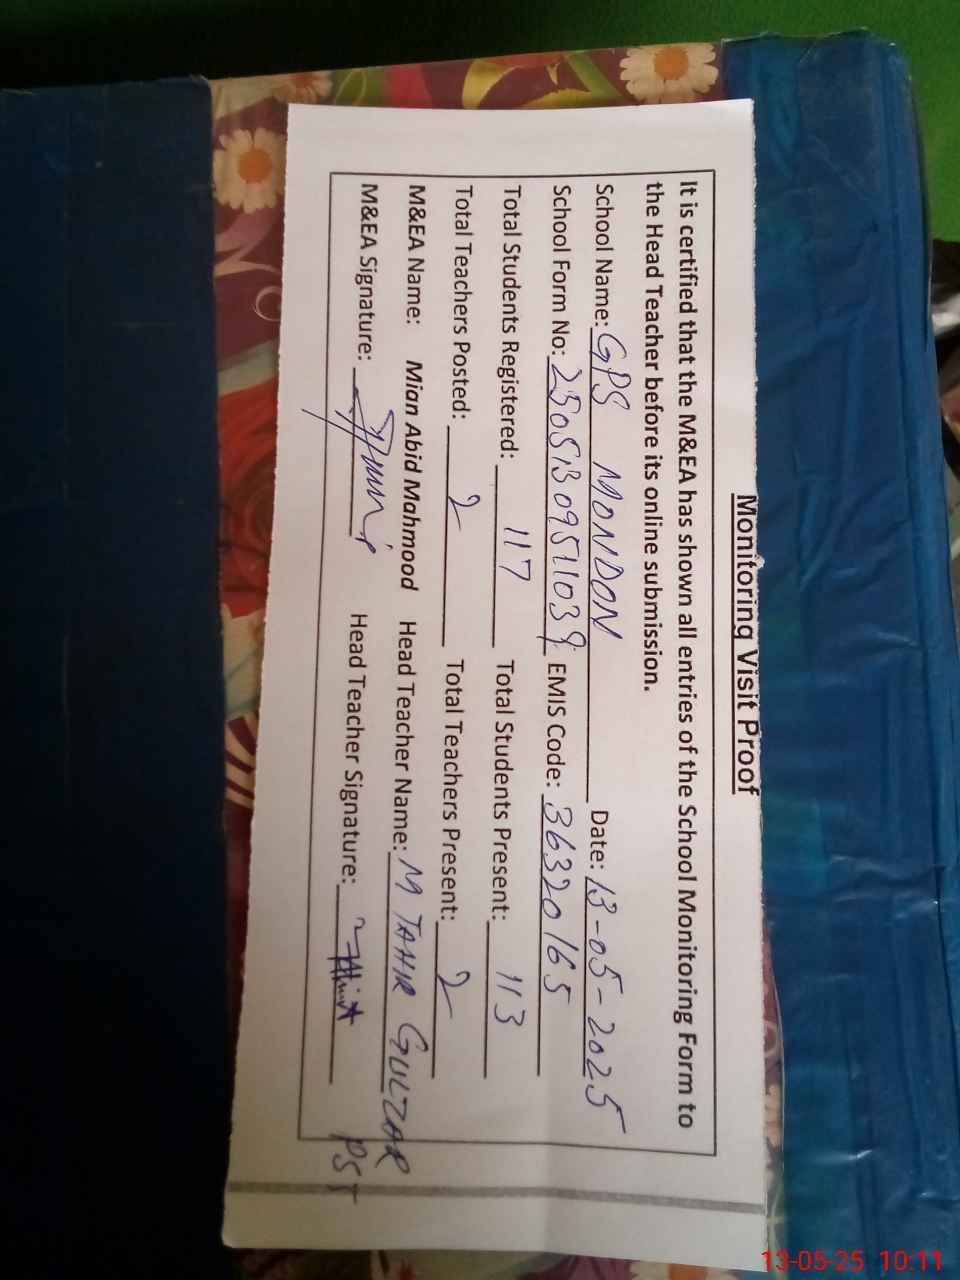 Monitoring Visit Proof
It is certified that the M&EA has shown all entries of the School Monitoring Form to
the Head Teacher before its online submission.
School Name: GPS MONDON Date: 13-05-2025
School Form No: 25051309511039 EMIS Code: 36320165
Total Students Registered: 117 Total Students Present: 113
Total Teachers Posted: 2 Total Teachers Present: 2
M&EA Name: Mian Abid Mahmood Head Teacher Name: M TAHIR GULZAR
M&EA Signature: Head Teacher Signature: PST
13-05-25 10:11